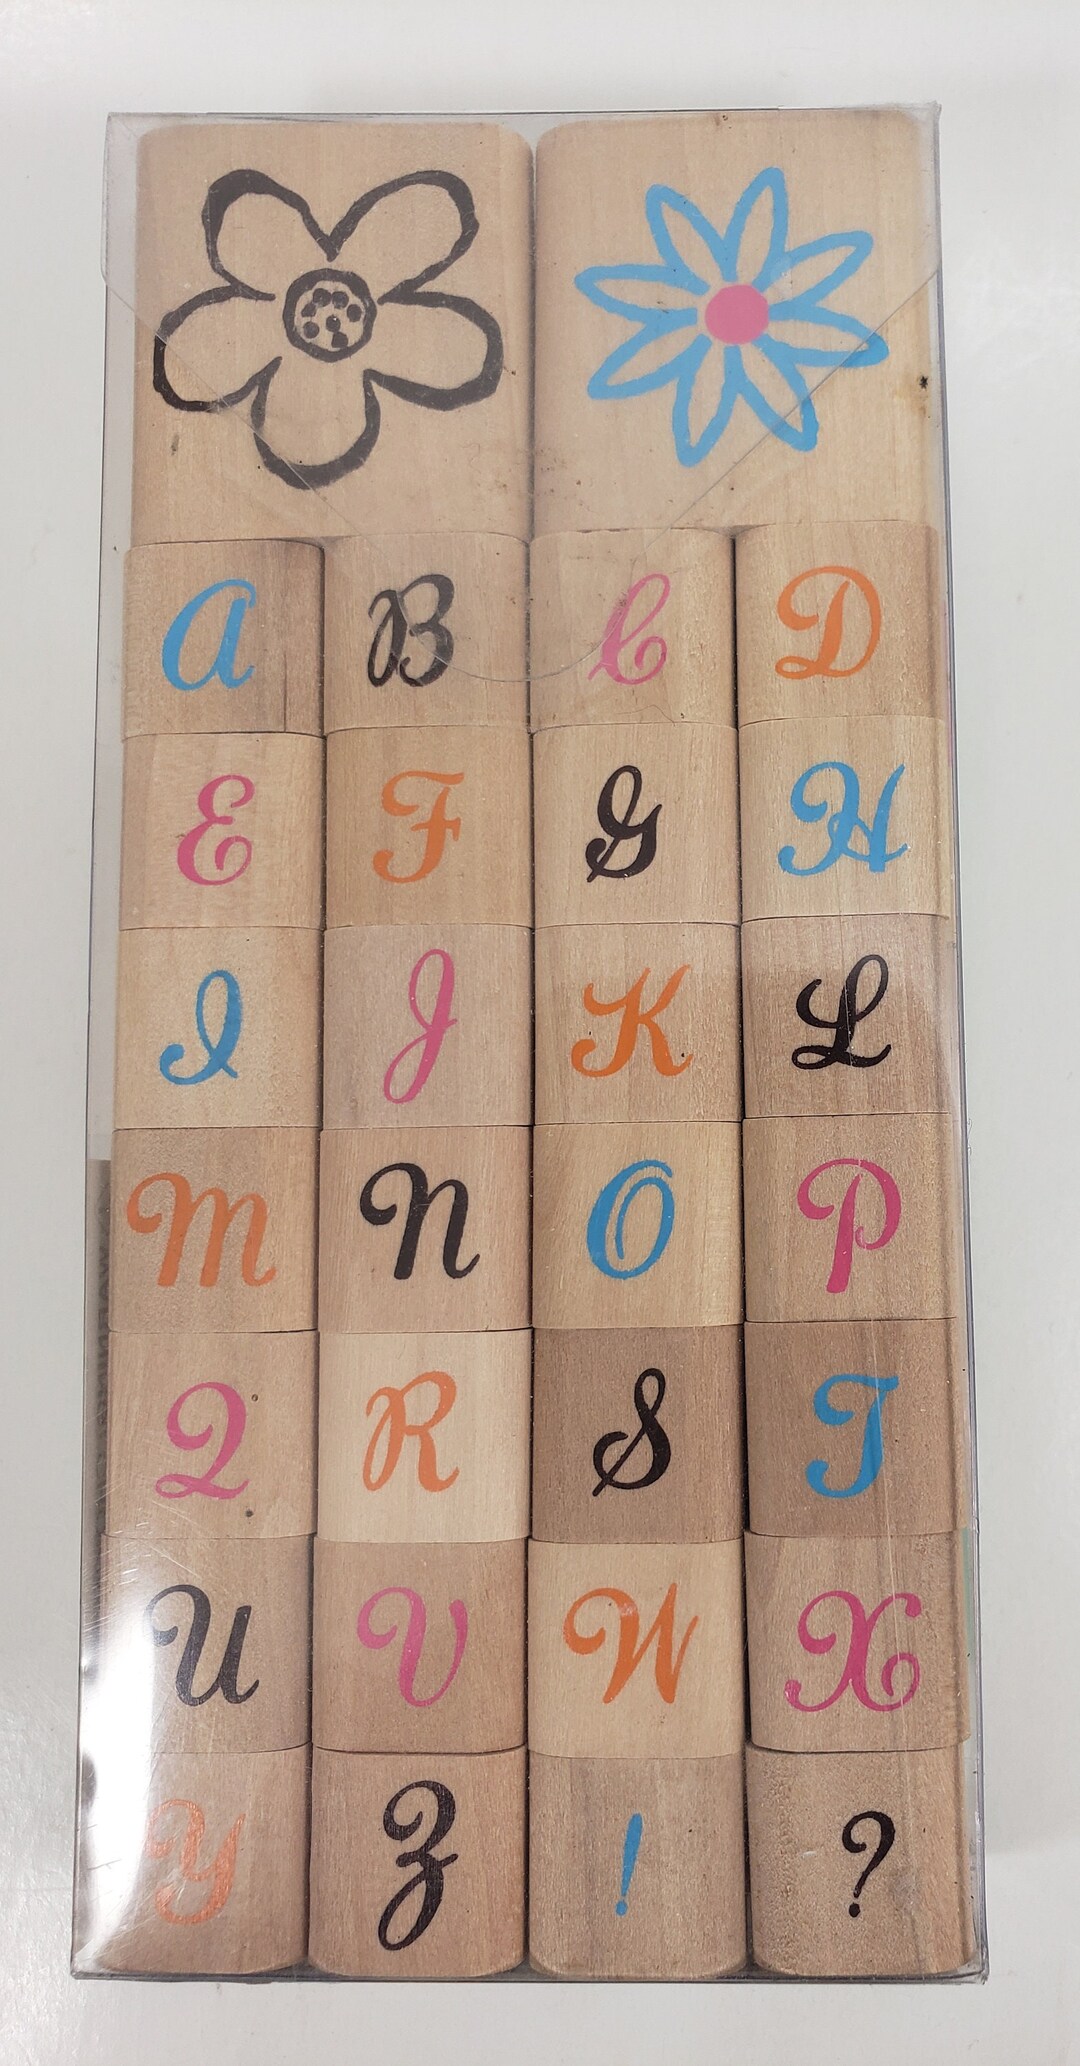 A B C D
E F G H
I J K L
M N O P
Q R S T
U V W X
Y Z ! ?